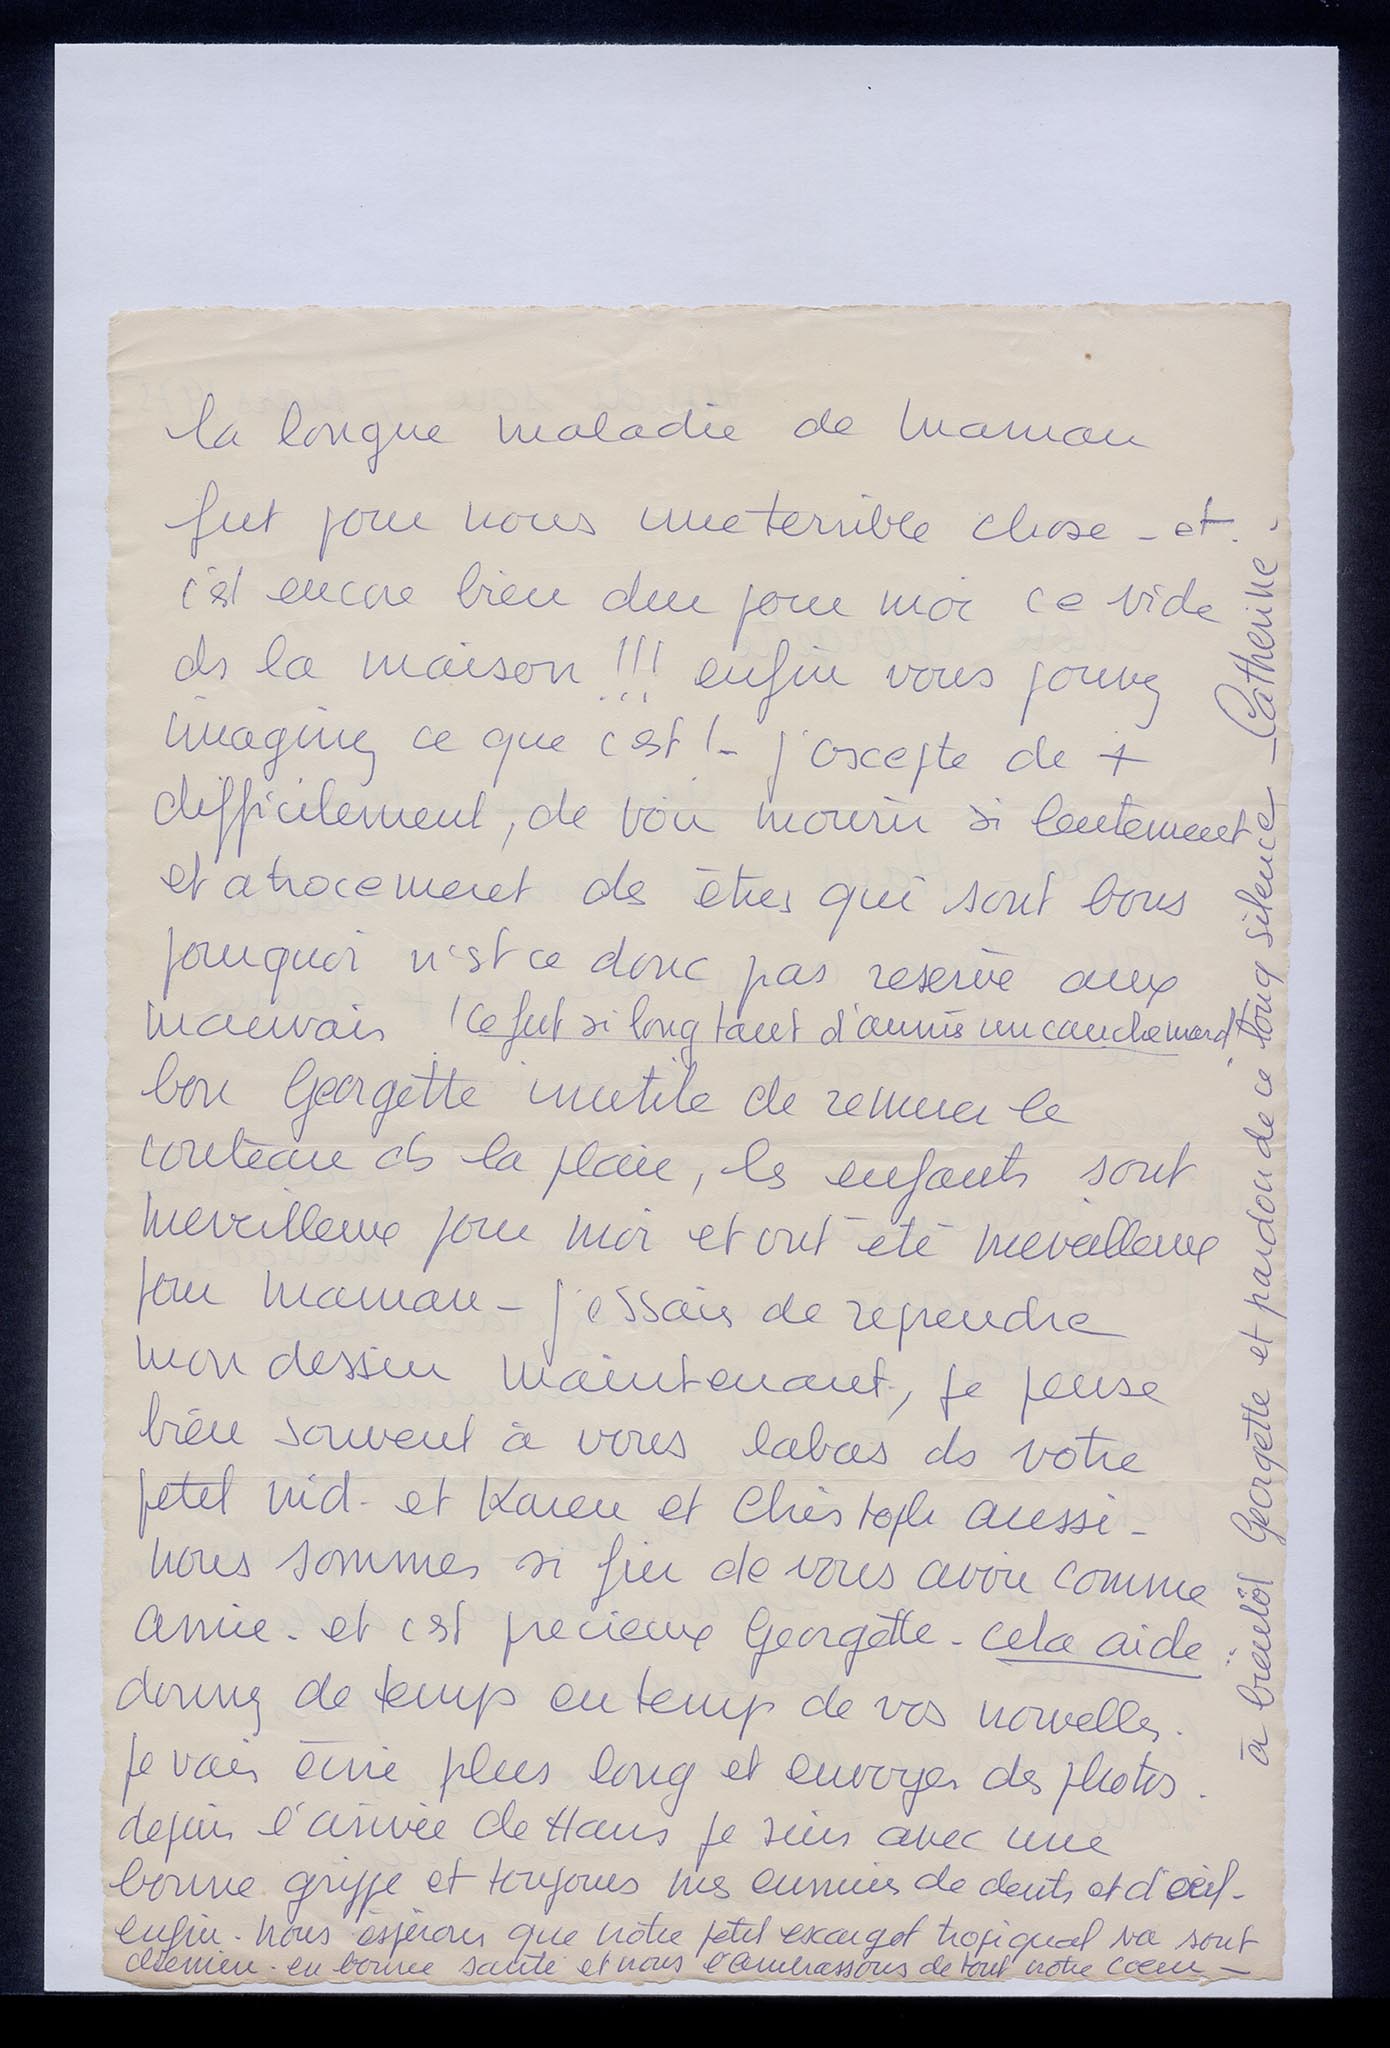 la longue maladie de maman
fut pour nous une terrible chose - et
c'est encore bien dur pour moi ce vide
ds la maison !!! enfin vous pouvez
imaginez ce que c'est ! - j'accepte de +
difficilement, de voir mourir si lentement
et atrocement des êtres qui sont bons
pourquoi n'est ce donc pas reservé aux
mauvais ! ce fut si long tant d'années un cauchemard
bon Georgette inutile de remuer le
couteau ds la plaie, les enfants sont
merveilleux pour moi et ont été merveilleux
pour maman - j'essaie de reprendre
mon dessin maintenant, je pense
bien souvent à vous labas ds votre
petit nid - et Karen et Christoph aussi -
nous sommes si fier de vous avoir comme
amie - et c'est precieux Georgette - cela aide
donnez de temps en temp de vos nouvelles.
je vais écrire plus long et envoyer des photos.
depuis l'arrivée de Hans je suis avec une
bonne grippe et toujours mes ennuies de dents et d'oeil -
enfin - nous éspérons que notre petit escargot tropiqual va sont
chemin - en bonne santé et nous l'embrassons de tout notre coeur -
à bientôt Georgette et pardon de ce long silence - Catherine -